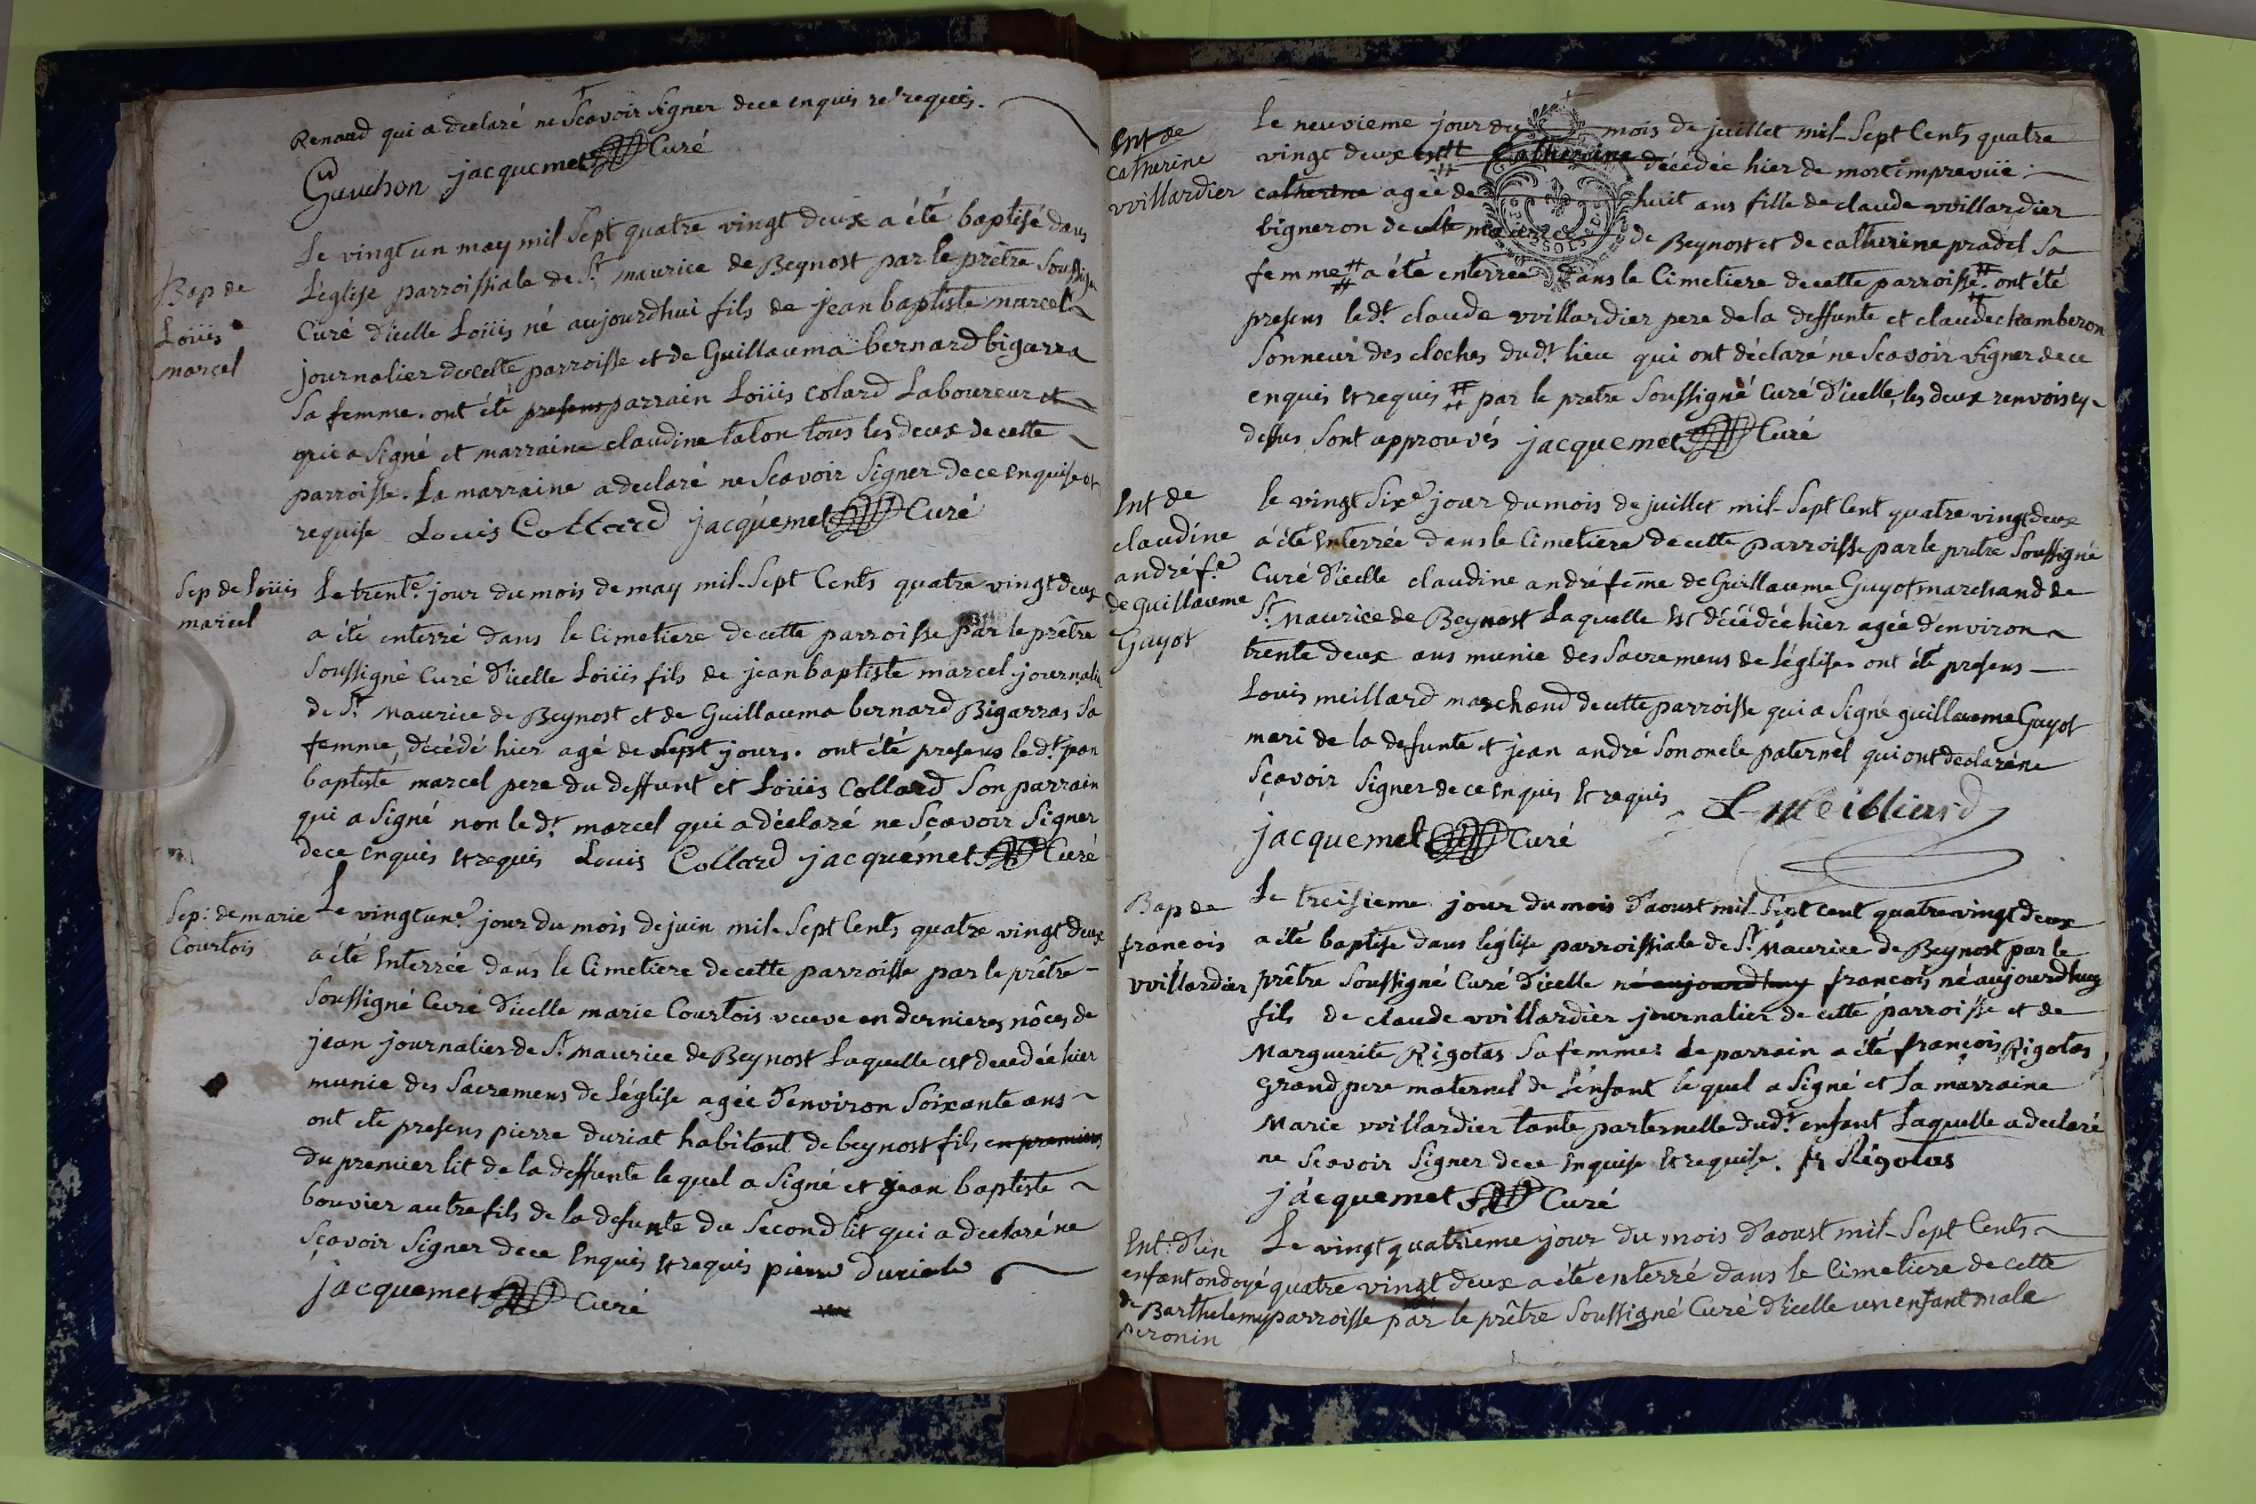 Renaud qui a declaré ne Scavoir Signer de ce enquis et requis.
Gauchon jacquemet Curé
Bap de
Loüis
marcel
Le vingt un may mil Sept quatre vingt deux a été baptisé dans
L'église parroissiale de St. maurice de Beynost par le prêtre Soussigné
Curé d'icelle Loüis né aujourdhui fils de jean baptiste marcel
journalier de cette parroisse et de Guillauma bernard bigarra
Sa femme. ont été presens parrain Loüis Colard Laboureur et
qui a Signé et marraine claudine talon tous les deux de cette
parroisse. La marraine a declaré ne Scavoir Signer de ce enquise et
requise Louis Collard jacquemet Curé
Sep de Loüis
marcel
Le trente. jour du mois de may mil-Sept Cents quatre vingt deux
a été enterré dans le Cimetiere de cette parroisse par le prêtre
Soussigné Curé d'icelle Loüis fils de jean baptiste marcel journalier
de St. Maurice de Beynost et de Guillauma bernard Bigarras Sa
femme, décédé hier agé de Sept jours. ont été presens le dt. jean
baptiste marcel pere du deffunt et Loüis Collard Son parrain
qui a Signé non le dt. marcel qui a déclaré ne Sçavoir Signer
de ce enquis et requis Louis Collard jacquemet Curé
Sep: de marie
Courtois
Le vingt une. jour du mois de juin mil-Sept Cents quatre vingt deux
a été Enterrée dans le Cimetiere de cette parroisse par le prêtre
Soussigné Curé d'icelle marie Courtois veuve en dernieres nôces de
jean journalier de St. maurice de Beynost Laquelle est decedée hier
munie des Sacremens de L'église agée d'environ Soixante ans
ont ete presens pierre duriat habitant de beynost fils en premiers
du premier lit de la deffunte lequel a Signé et jean baptiste
bouvier autre fils de la defunte du Second lit qui a declaré ne
Sçavoir Signer de ce Enquis et requis pierre duriat
jacquemet Curé
Ent de
catherine
vvillardier
Le neuvieme jour du mois de juillet mil-Sept Cents quatre
vingt deux est Catherine décédée hier de mort imprevüe
catherine agée de huit ans fille de claude vvillardier
vigneron de St maurice de Beynost et de catherine pradel Sa
femme # a été enterrée dans le Cimetiere de cette parroisse # ont été
presens le dt. claude vvillardier pere de la deffunte et claude chamberon
Sonneur des cloches du dt. lieu qui ont déclaré ne Scavoir Signer de ce
enquis et requis # par le pretre Soussigné Curé d'icelle, les deux renvois cy
dessus Sont approuvés jacquemet Curé
Ent de
claudine
andré fe.
de guillaume
Guyot
le vingt Sixe. jour du mois de juillet mil-Sept Cent quatre vingt deux
a été Enterrée dans le Cimetiere de cette parroisse par le prêtre Soussigné
Curé d'icelle claudine andré feme de Guillaume Guyot marchand de
St. Maurice de Beynost Laquelle est décédée hier agée d'environ
trente deux ans munie des Sacremens de L'église. ont été presens
Louis meillard marchand de cette parroisse qui a Signé guillaume Guyot
mari de la defunte et jean andré Son oncle paternel qui ont declaré ne
Scavoir Signer de ce Enquis et requis L meilliard
jacquemet Curé
Bap de
francois
vvillardier
Le treisieme jour du mois d'aoust mil-Sept cent quatre vingt deux
a été baptise dans l'église parroissiale de St. Maurice de Beynost par le
prêtre Soussigné Curé d'icelle né aujourdhuy francois né aujourdhuy
fils de claude vvillardier journalier de cette parroisse et de
Marguerite Rigolas Sa femme: Le parrain a été françois Rigolas
grand pere maternel de L'enfant lequel a Signé et La marraine
Marie vvillardier tante parternelle du dt. enfant Laquelle a declaré
ne Scavoir Signer de ce Enquise et requise. fr Rigolas
jacquemet Curé
Ent: d'un
enfant ondoyé
de Barthelemy
peronin
Le vingt quatrieme jour du mois d'aoust mil-Sept Cents
quatre vingt deux a été enterré dans le Cimetiere de cette
parroisse par le prêtre Soussigné Curé d'icelle un enfant male